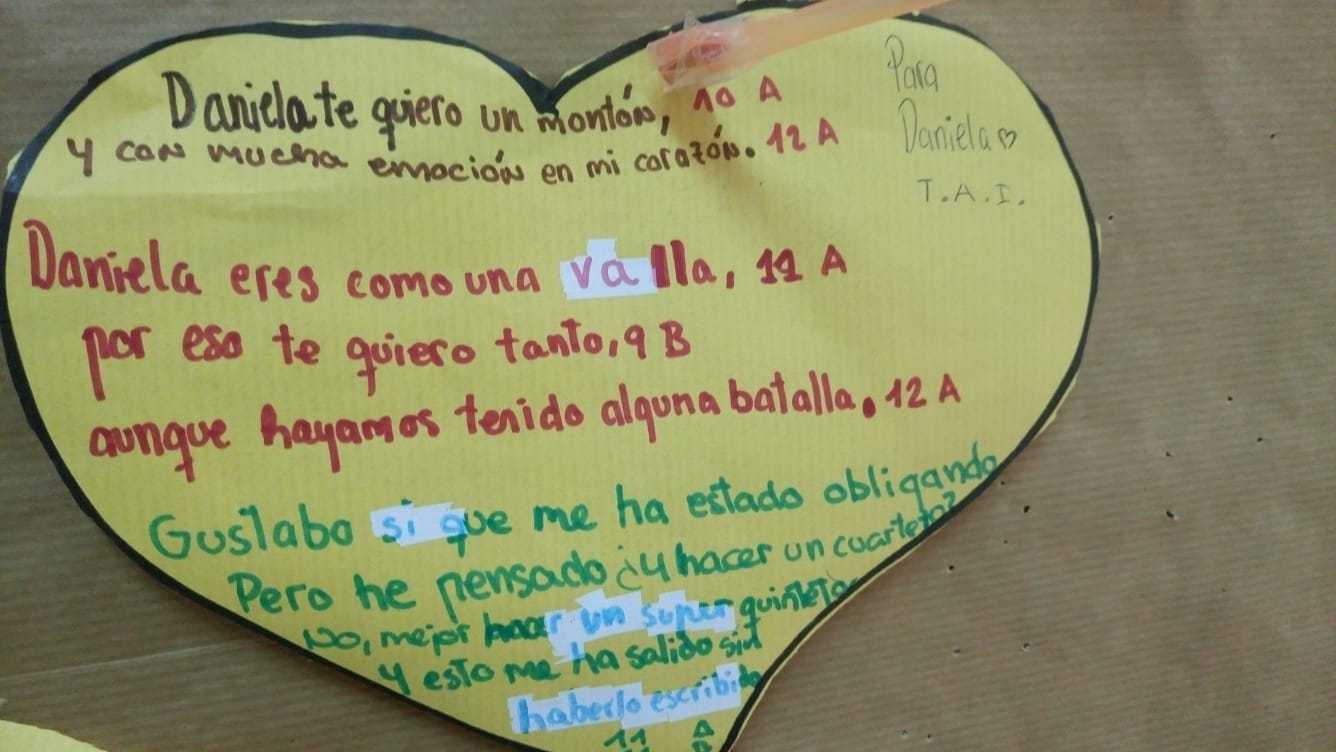 Daniela te quiero un montón, 10 A
y con mucha emoción en mi corazón. 12 A
Para
Daniela♡
T.A.I.
Daniela eres como una valla, 11 A
por eso te quiero tanto, 9 B
aunque hayamos tenido alguna batalla. 12 A
Gustabo si que me ha estado obligando
Pero he pensado ¿y hacer un cuarteto?
No, mejor hacer un super quinteto
y esto me ha salido sin
haberlo escribido
11 A